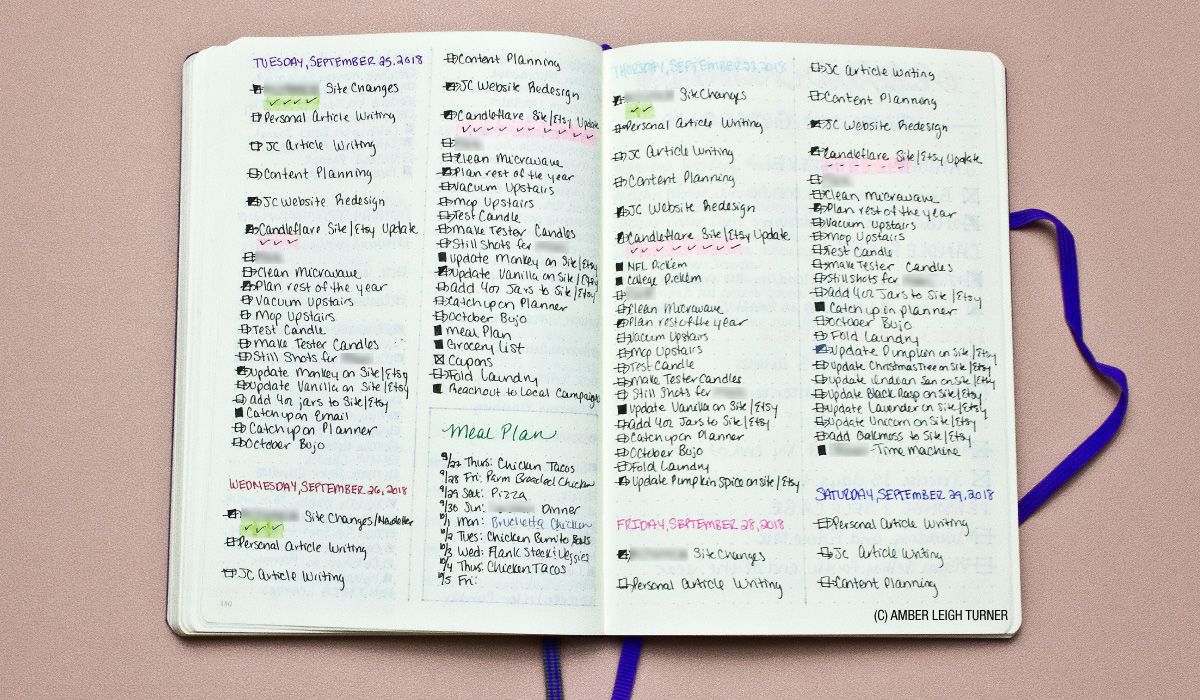 TUESDAY, SEPTEMBER 25.2018
Site Changes
Personal Article Writing
JC Article Writing
Content Planning
JC Website Redesign
Candleflare Site/Etsy Update
Clean Microwave
Plan rest of the year
Vacuum Upstairs
Mop Upstairs
Test Candle
Make Tester Candles
Still Shots for
Update Monkey on Site/Etsy
Update Vanilla on Site/Etsy
add 4oz jars to Site/Etsy
Catch up on Email
Catch up on Planner
October Bujo
WEDNESDAY, SEPTEMBER 26, 2018
Site Changes/Newsletter
Personal Article Writing
JC Article Writing
180
Content Planning
JC Website Redesign
Candleflare Site/Etsy Update
Clean Microwave
Plan rest of the year
Vacuum Upstairs
Mop Upstairs
Test Candle
Make Tester Candles
Still Shots for
Update Monkey on Site/Etsy
Update Vanilla on Site/Etsy
add 4oz Jars to Site/Etsy
Catch up on Planner
October Bujo
Meal Plan
Grocery List
Coupons
Fold Laundry
Reach out to Local Campaigns
Meal Plan
9/27 Thurs: Chicken Tacos
9/28 Fri: Parm Breaded Chicken
9/29 Sat: Pizza
9/30 Sun: Dinner
10/1 Mon: Bruchetta Chicken
10/2 Tues: Chicken Burrito Bowls
10/3 Wed: Flank Steak & Veggies
10/4 Thurs: Chicken Tacos
10/5 Fri:
THURSDAY, SEPTEMBER 27, 2018
Site Changes
Personal Article Writing
JC Article Writing
Content Planning
JC Website Redesign
Candleflare Site/Etsy Update
NFL Pickem
College Pickem
Clean Microwave
Plan rest of the year
Vacuum Upstairs
Mop Upstairs
Test Candle
Make Tester Candles
Still Shots for
Update Vanilla on Site/Etsy
add 4oz Jars to Site/Etsy
Catch up on Planner
October Bujo
Fold Laundry
Update Pumpkin Spice on site/Etsy
FRIDAY, SEPTEMBER 28, 2018
Site Changes
Personal Article Writing
JC Article Writing
Content Planning
JC Website Redesign
Candleflare Site/Etsy Update
Clean Microwave
Plan rest of the year
Vacuum Upstairs
Mop Upstairs
Test Candle
Make Tester Candles
Still Shots for
add 4oz Jars to Site/Etsy
Catch up on planner
October Bujo
Fold Laundry
Update Pumpkin on Site/Etsy
Update Christmas Tree on Site/Etsy
Update Indian San on Site/Etsy
Update Black Rasp on Site/Etsy
Update Lavender on Site/Etsy
Update Unicorn on Site/Etsy
add Oakmoss to Site/Etsy
-Time Machine
SATURDAY, SEPTEMBER 29, 2018
Personal Article Writing
JC Article Writing
Content Planning
(C) AMBER LEIGH TURNER